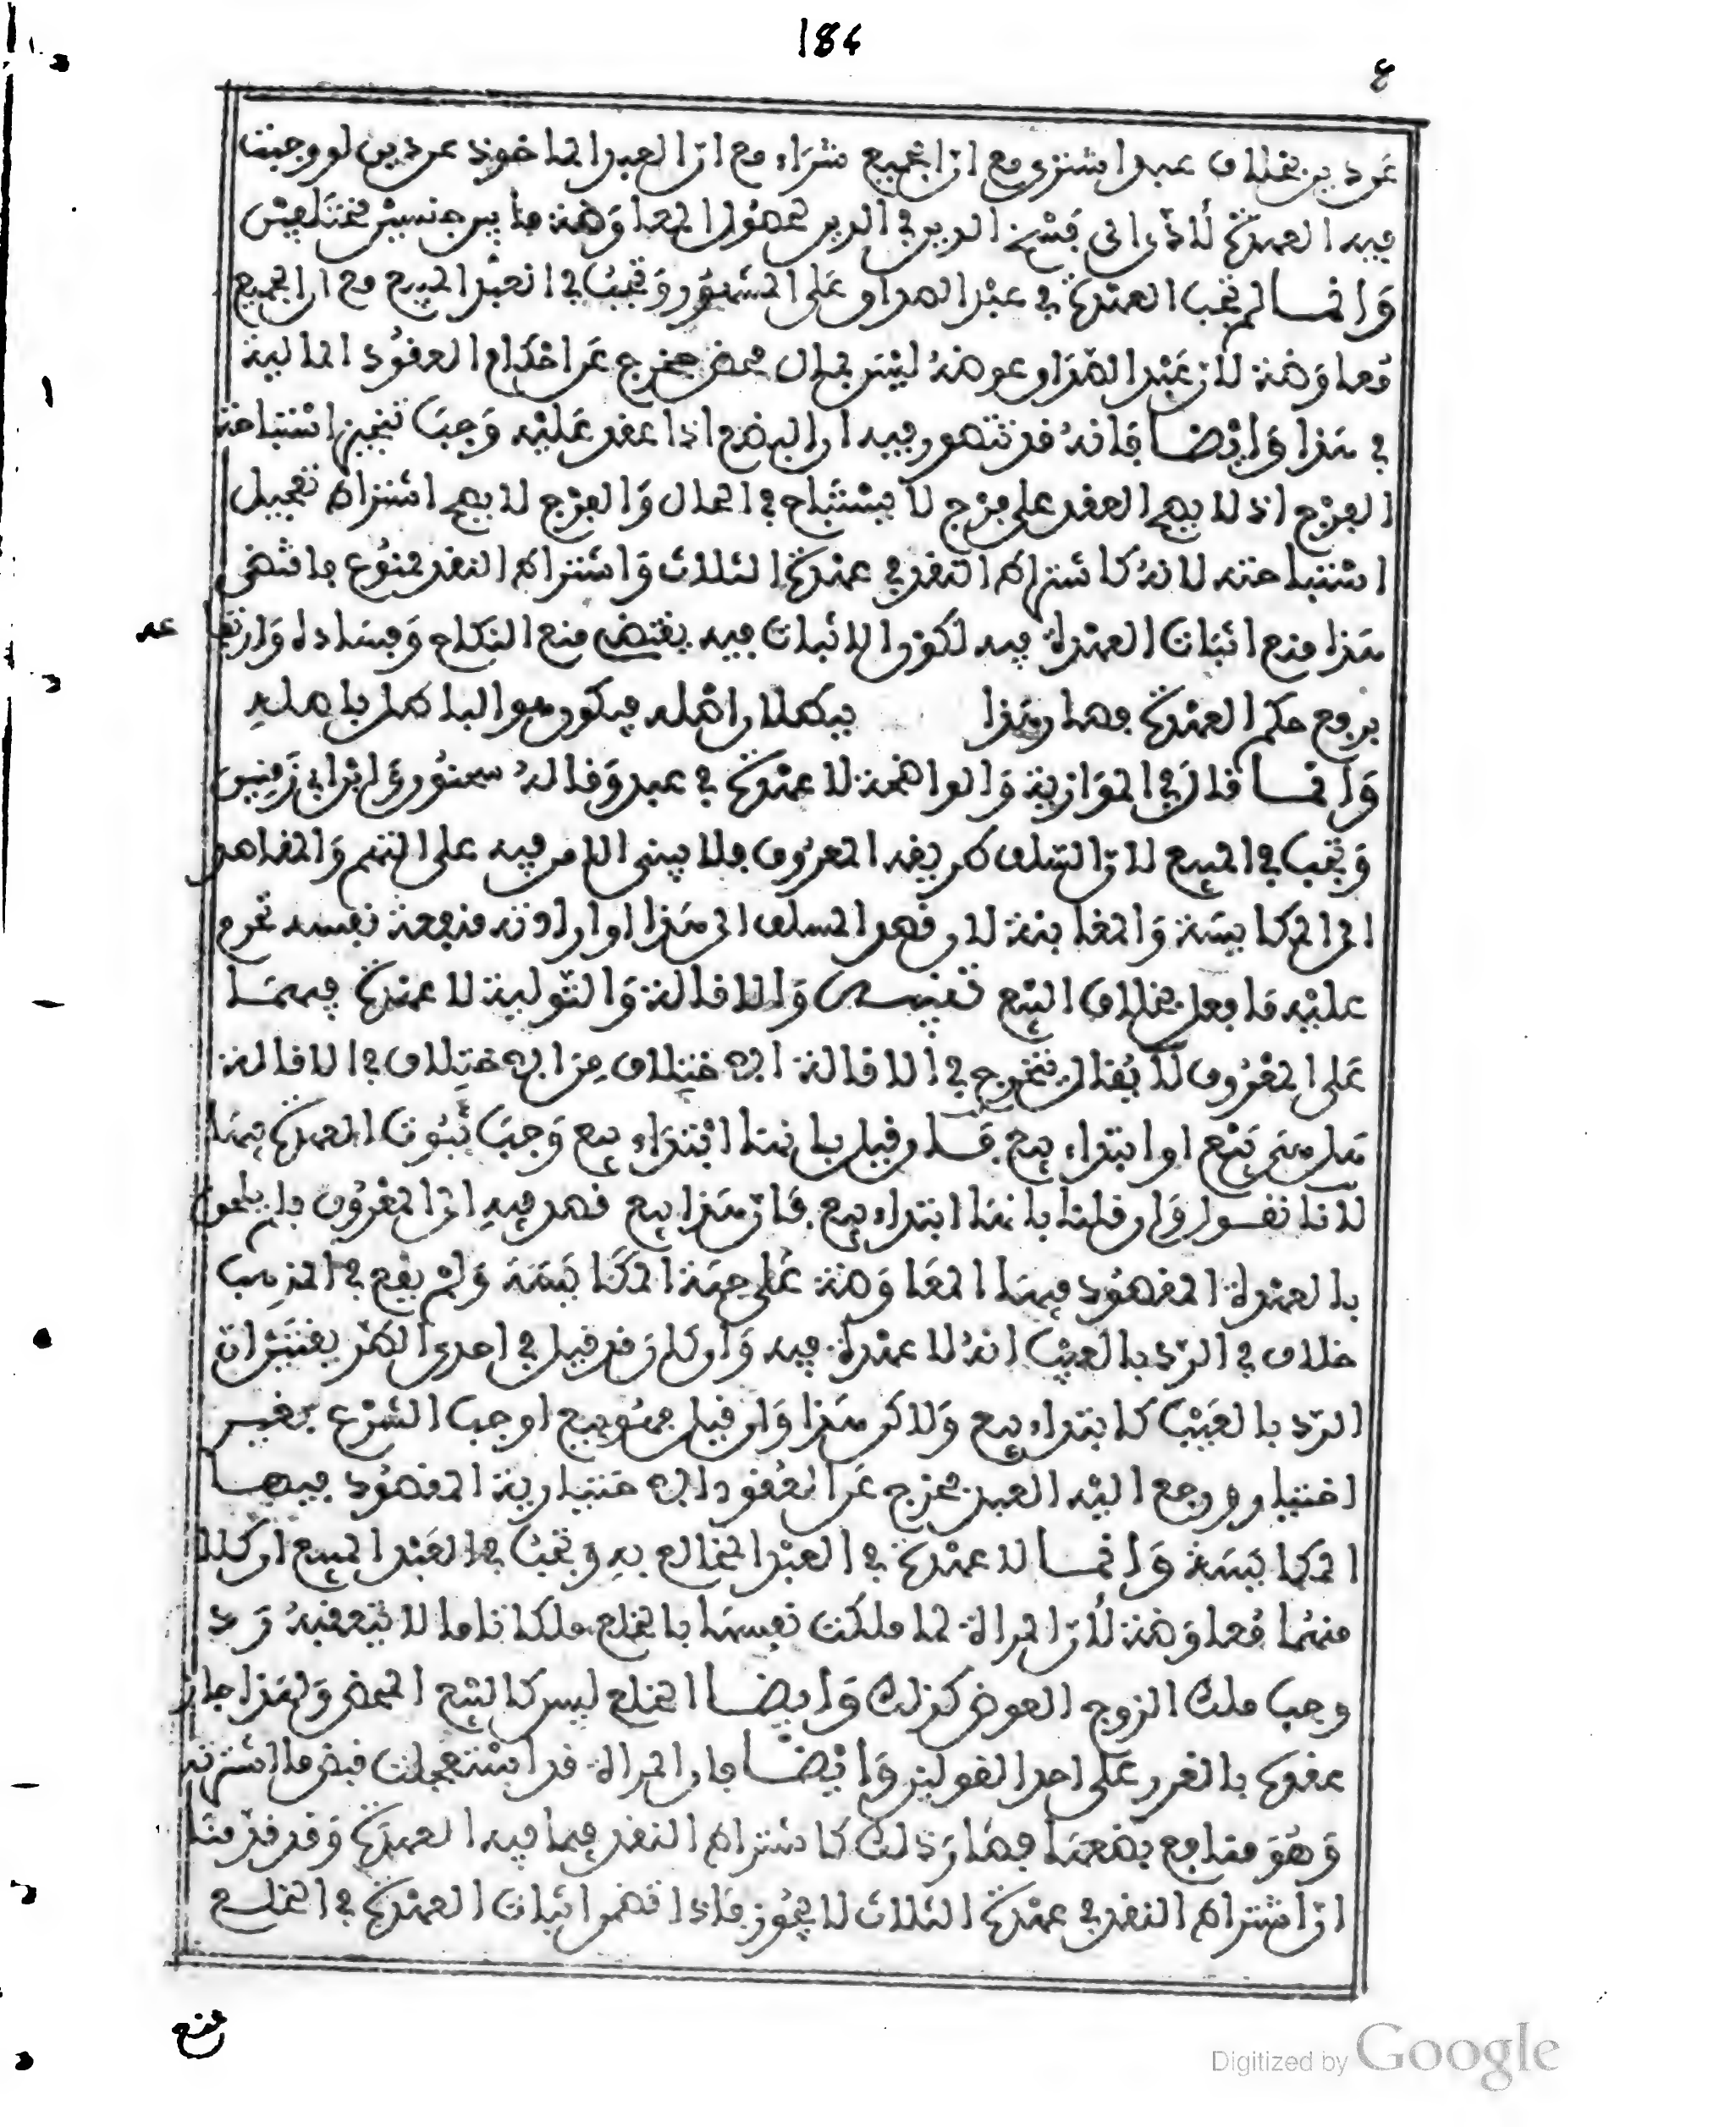 184
8
عن دين بخلاف عبد اشتري مع ان الجميع شراء مع ان العبد الماخوذ عن دين لو وجبت
فيه العهدة لأدى الى فسخ الدين في الدين لحصول المعاوضة ما بين جنسين مختلفين
وانما لم تجب العهدة في عبد الصداق على المشهور وتجب في العبد المبيع مع ان الجميع
معاوضة لان عبد الصداق عوضه ليس بمال محض فخرج عن احكام العقود المالية
في هذا وايضا فانه قد تقرر فيه ان البضع اذا عقد عليه وجب تنجيز استباحة
الفرج اذ لا يصح العقد على فرج لا يستباح في الحال والفرج لا يصح اشتراط تعجيل
استباحته لانه كاشتراط النقد في عهدة الثلاث واشتراط النقد ممنوع فاقتضى
هذا منع اثبات العهدة فيه لكون الاثبات فيه يقتضي منع النكاح وفساده وارتفا
عه
يرفع حكم العهدة فصار هذا فيبطل ان اصله فيكون هو الباطل باصله
وانما قال في الموازية والواضحة لا عهدة في عبد وقاله سحنون وابن ابي زمنين
وتجب في المبيع لان السلف طريقه المعروف فلا يبنى الامر فيه على التتم والمقاصد
الى المكايسة والمغابنة لان قصد المسلف الى هذا او ارادته منفعة نفسه تحرم
عليه ما فعل بخلاف البيع تنبيه والاقالة والتولية لا عهدة فيهما
على المعروف لا يقال يتخرج في الاقالة الاختلاف من الاختلاف في الاقالة
هل هي بيع او ابتداء بيع فان قيل بانها ابتداء بيع وجب ثبوت العهدة فيها
لانا نقول وان قلنا بانها ابتداء بيع فان هذا بيع قصد فيه الى المعروف فلم يلحق
بالعهدة المقصود فيها المعاوضة على جهة المكايسة ولم يقع في المذهب
خلاف في الرد بالعيب انه لا عهدة فيه وان كان قد قيل في احدى الطريقتين ان
الرد بالعيب كابتداء بيع ولاكن هذا وان قيل فهو بيع اوجب الشرع بغير
اختيار ورجع اليه العبد فخرج عن العقود الاختيارية المقصود فيها
المكايسة وانما لا عهدة في العبد المخالع به وتجب في العبد المبيع اذ كلا
منهما معاوضة لان المراة لما ملكت نفسها بالخلع ملكا تاما لا يتعقبه رد
وجب ملك الزوج العوض كذلك وايضا الخلع ليس كالبيع المحض ولهذا جاز
عقده بالغرر على احد القولين وايضا فان المراة قد استعجلت قبض ما اشترته
وهو منافع بضعها فصار ذلك كاشتراط النقد فيما فيه العهدة وقد قدمنا
ان اشتراط النقد في عهدة الثلاث لا يجوز فاذا اقتضى اثبات العهدة في الخلع
منع
Digitized by Google